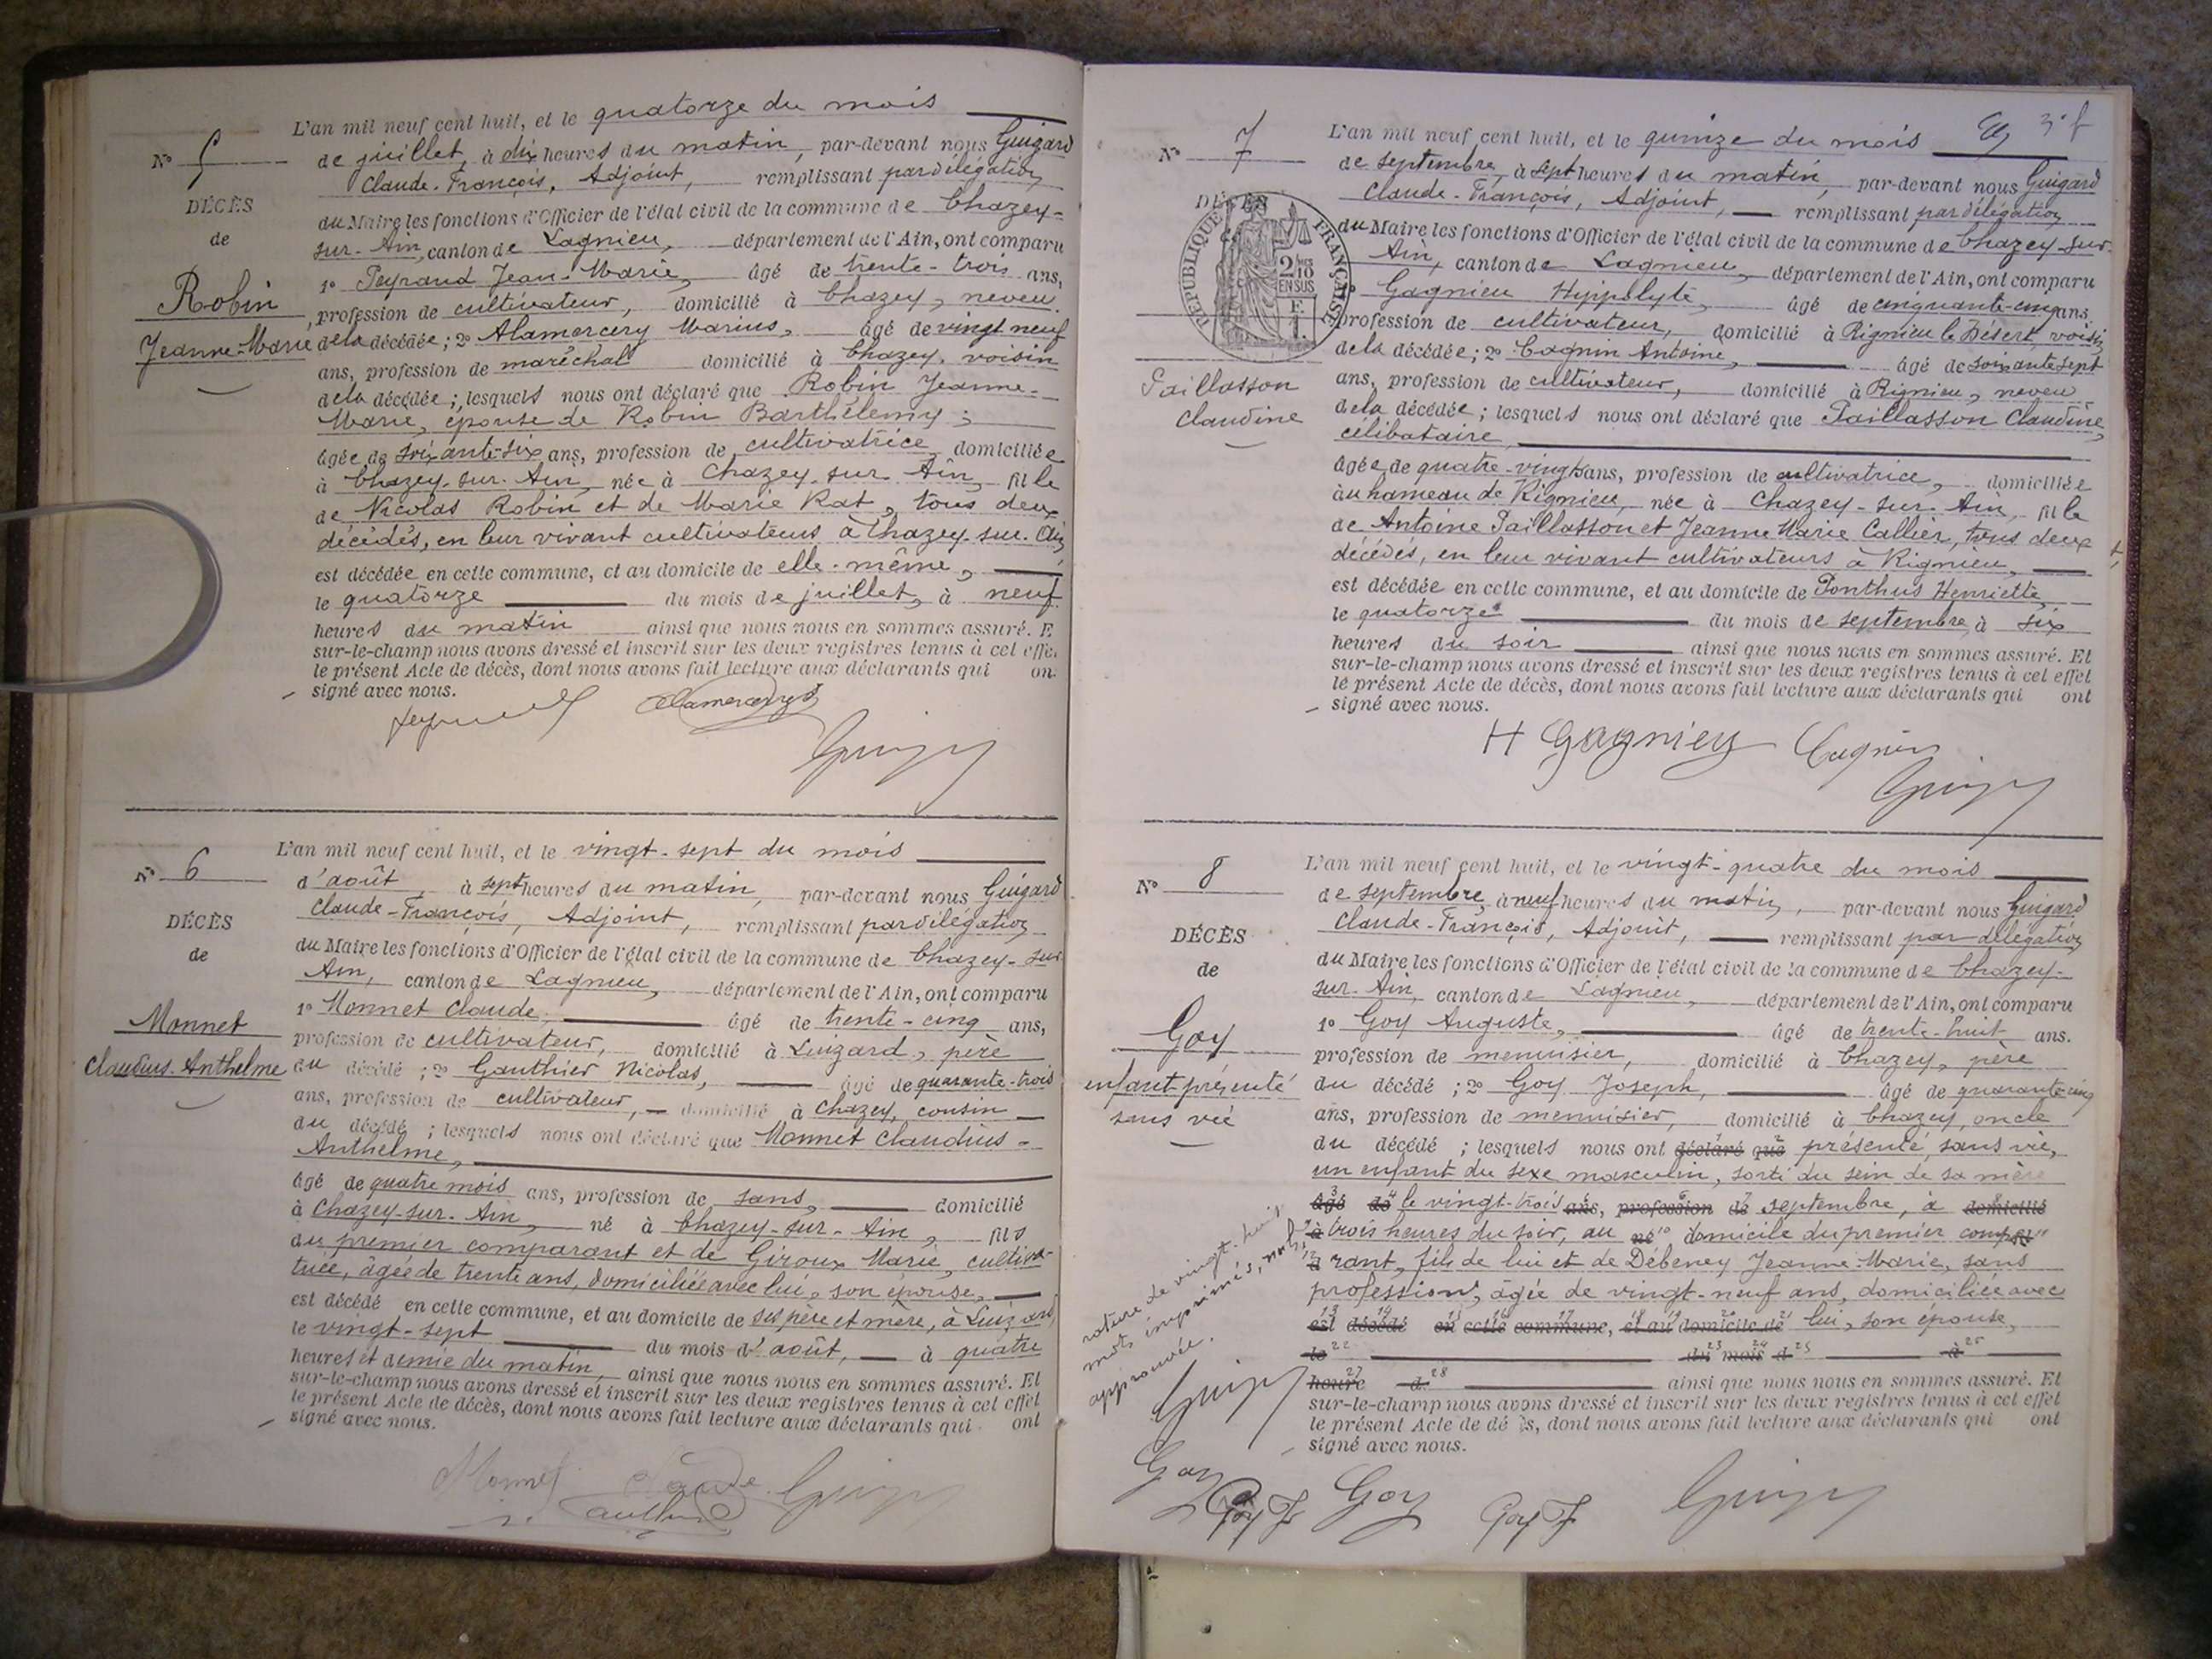 L'an mil neuf cent huit, et le quatorze du mois
N° 5
de juillet, à dix heures du matin, par-devant nous Guigard
Claude-François, Adjoint, remplissant par délégation
DÉCÈS
de
Robin
Jeanne-Marie
du Maire les fonctions d'Officier de l'état civil de la commune de Chazey-
sur-Ain, canton de Lagnieu, département de l'Ain, ont comparu
1° Peyraud Jean-Marie, âgé de trente-trois ans,
profession de cultivateur, domicilié à Chazey, neveu
de la décédée; 2° Alamercery Marius, âgé de vingt neuf
ans, profession de maréchal domicilié à Chazey, voisin
de la décédée; lesquels nous ont déclaré que Robin Jeanne-
Marie, épouse de Robin Barthélemy;
âgée de soixante-six ans, profession de cultivatrice domiciliée
à Chazey-sur-Ain, née à Chazey-sur-Ain, fille
de Nicolas Robin et de Marie Rat, tous deux
décédés, en leur vivant cultivateurs à Chazey-sur-Ain,
est décédée en cette commune, et au domicile de elle-même,
le quatorze du mois de juillet, à neuf
heures du matin ainsi que nous nous en sommes assuré. E
sur-le-champ nous avons dressé et inscrit sur les deux registres tenus à cet effe
le présent Acte de décès, dont nous avons fait lecture aux déclarants qui on
signé avec nous.
Alamercery
L'an mil neuf cent huit, et le vingt-sept du mois
N° 6
d'août, à sept heures du matin, par-devant nous Guigard
Claude-François, Adjoint, remplissant par délégation
DÉCÈS
de
Monnet
Claudius-Anthelme
du Maire les fonctions d'Officier de l'état civil de la commune de Chazey-sur
Ain, canton de Lagnieu, département de l'Ain, ont comparu
1° Monnet Claude, âgé de trente-cinq ans,
profession de cultivateur, domicilié à Luizard, père
du décédé; 2° Gauthier Nicolas, âgé de quarante-trois
ans, profession de cultivateur, domicilié à Chazey, cousin
du décédé; lesquels nous ont déclaré que Monnet Claudius-
Anthelme,
âgé de quatre mois ans, profession de sans, domicilié
à Chazey-sur-Ain, né à Chazey-sur-Ain, fils
du premier comparant et de Giroux Marie, cultiva-
trice, âgée de trente ans, domiciliée avec lui, son épouse,
est décédé en cette commune, et au domicile de ses père et mère, à Luizard,
le vingt-sept du mois d'août, à quatre
heures et demie du matin, ainsi que nous nous en sommes assuré. Et
sur-le-champ nous avons dressé et inscrit sur les deux registres tenus à cet effet
le présent Acte de décès, dont nous avons fait lecture aux déclarants qui ont
signé avec nous.
Monnet Claude
3e f
L'an mil neuf cent huit, et le quinze du mois
N° 7
de septembre, à sept heures du matin, par-devant nous Guigard
Claude-François, Adjoint, remplissant par délégation
DÉCÈS
RÉPUBLIQUE FRANÇAISE
2/10 EN SUS
Paillasson
Claudine
du Maire les fonctions d'Officier de l'état civil de la commune de Chazey-sur-
Ain, canton de Lagnieu, département de l'Ain, ont comparu
Gagnieu Hyppolyte, âgé de cinquante-cinq ans,
profession de cultivateur, domicilié à Rignieu le Désert, voisin
de la décédée; 2° Cagnin Antoine, âgé de soixante sept
ans, profession de cultivateur, domicilié à Rignieu, neveu
de la décédée; lesquels nous ont déclaré que Paillasson Claudine,
célibataire,
âgée de quatre-vingts ans, profession de cultivatrice, domiciliée
au hameau de Rignieu, née à Chazey-sur-Ain, fille
de Antoine Paillasson et Jeanne Marie Callier, tous deux
décédés, en leur vivant cultivateurs à Rignieu,
est décédée en cette commune, et au domicile de Ponthus Henriette,
le quatorze du mois de septembre à six
heures du soir ainsi que nous nous en sommes assuré. Et
sur-le-champ nous avons dressé et inscrit sur les deux registres tenus à cet effet
le présent Acte de décès, dont nous avons fait lecture aux déclarants qui ont
signé avec nous.
H Gagnieu Cagnin
L'an mil neuf cent huit, et le vingt-quatre du mois
N° 8
de septembre, à neuf heures du matin, par-devant nous Guigard
Claude-François, Adjoint, remplissant par délégation
DÉCÈS
de
Goy
enfant présenté
sans vie
du Maire les fonctions d'Officier de l'état civil de la commune de Chazey-
sur-Ain, canton de Lagnieu, département de l'Ain, ont comparu
1° Goy Auguste, âgé de trente-huit ans.
profession de menuisier, domicilié à Chazey, père
du décédé; 2° Goy Joseph, âgé de quarante-cinq
ans, profession de menuisier, domicilié à Chazey, oncle
du décédé; lesquels nous ont déclaré que présenté, sans vie,
un enfant du sexe masculin, sorti du sein de sa mère
âgé de le vingt-trois ans, profession de septembre, à domicilié
à trois heures du soir, au né domicile du premier compa-
à rant, fils de lui et de Débeney Jeanne-Marie, sans
profession, âgée de vingt-neuf ans, domiciliée avec
est décédé en cette commune, et au domicile de lui, son épouse,
le 22 du 23 mois 24 d 25 à
heure 27 d 28 ainsi que nous nous en sommes assuré. Et
sur-le-champ nous avons dressé et inscrit sur les deux registres tenus à cet effet
le présent Acte de dé s, dont nous avons fait lecture aux déclarants qui ont
signé avec nous.
rature de vingt-huit
mots imprimés, nuls,
approuvée.
Goy Goy J Goy Goy J